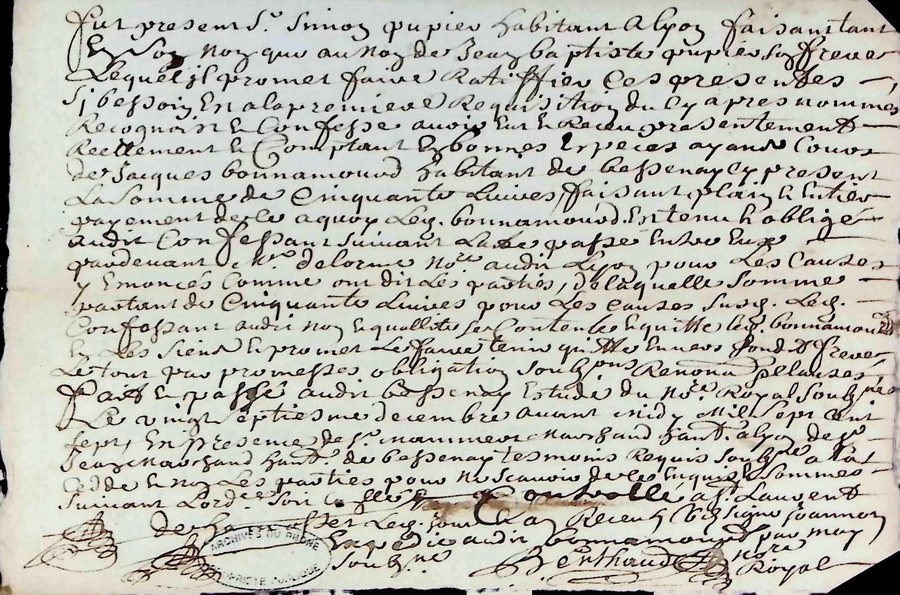 fut present Sr. Simon pupier habitant a lyon faisant tant
En Son Non que au Non de Jean baptiste pupier Son frere
Lequel Jl promet faire Ratiffier Ces presentes
Sj bessoin En a la premiere Requisition du Cy apres nommes
Recognoit & Confesse avoir Eut & Receu presentement
Reellement & Comptant En bonnes Especes ayans Cours
de Jacques bonnamourd habitant de bessenay Cy present
La Somme de Cinquante Livres faisant plain & Entier
payement de Celle a quoy Led. bonnamourd Est tenu & oblige
audit Confessant Suivant Lacte passe Entre Eux
pardevant Me. delorme Nore. audit Lyon pour Les Causes
y Enoncés Comme ont dit Les parties, de laquelle Somme
partant de Cinquante Livres pour Les Causes Susd. Led.
Confessant audit Non & quallite Se Contente & quitte led. bonnamourd
& Les Siens & promet Le faire tenir quitte Envers Sond. frere
Le tout par promesses obligation Renon Clauses
fait & passé audit bessenay Estude du Nore. Royal Soubz.
Le vingt Septiesme decembre avant midy Mil Sept Cent
Sept, En presence de Sr. marchand hant. a lyon & de Sr.
Jean marchand hant. de bessenay tesmoins Requis Soubz.
& Non Les parties pour Ne Scavoir de Ce Enquis & Sommes
Suivant Lord. Controlle a St. Laurent
Led. jour & an Receu Signe joannon
Expedie audit bonnamourd par moy
Soubz.ne Berthaud nore
Royal
ARCHIVES DU RHONE
PROPRIETE PUBLIQUE